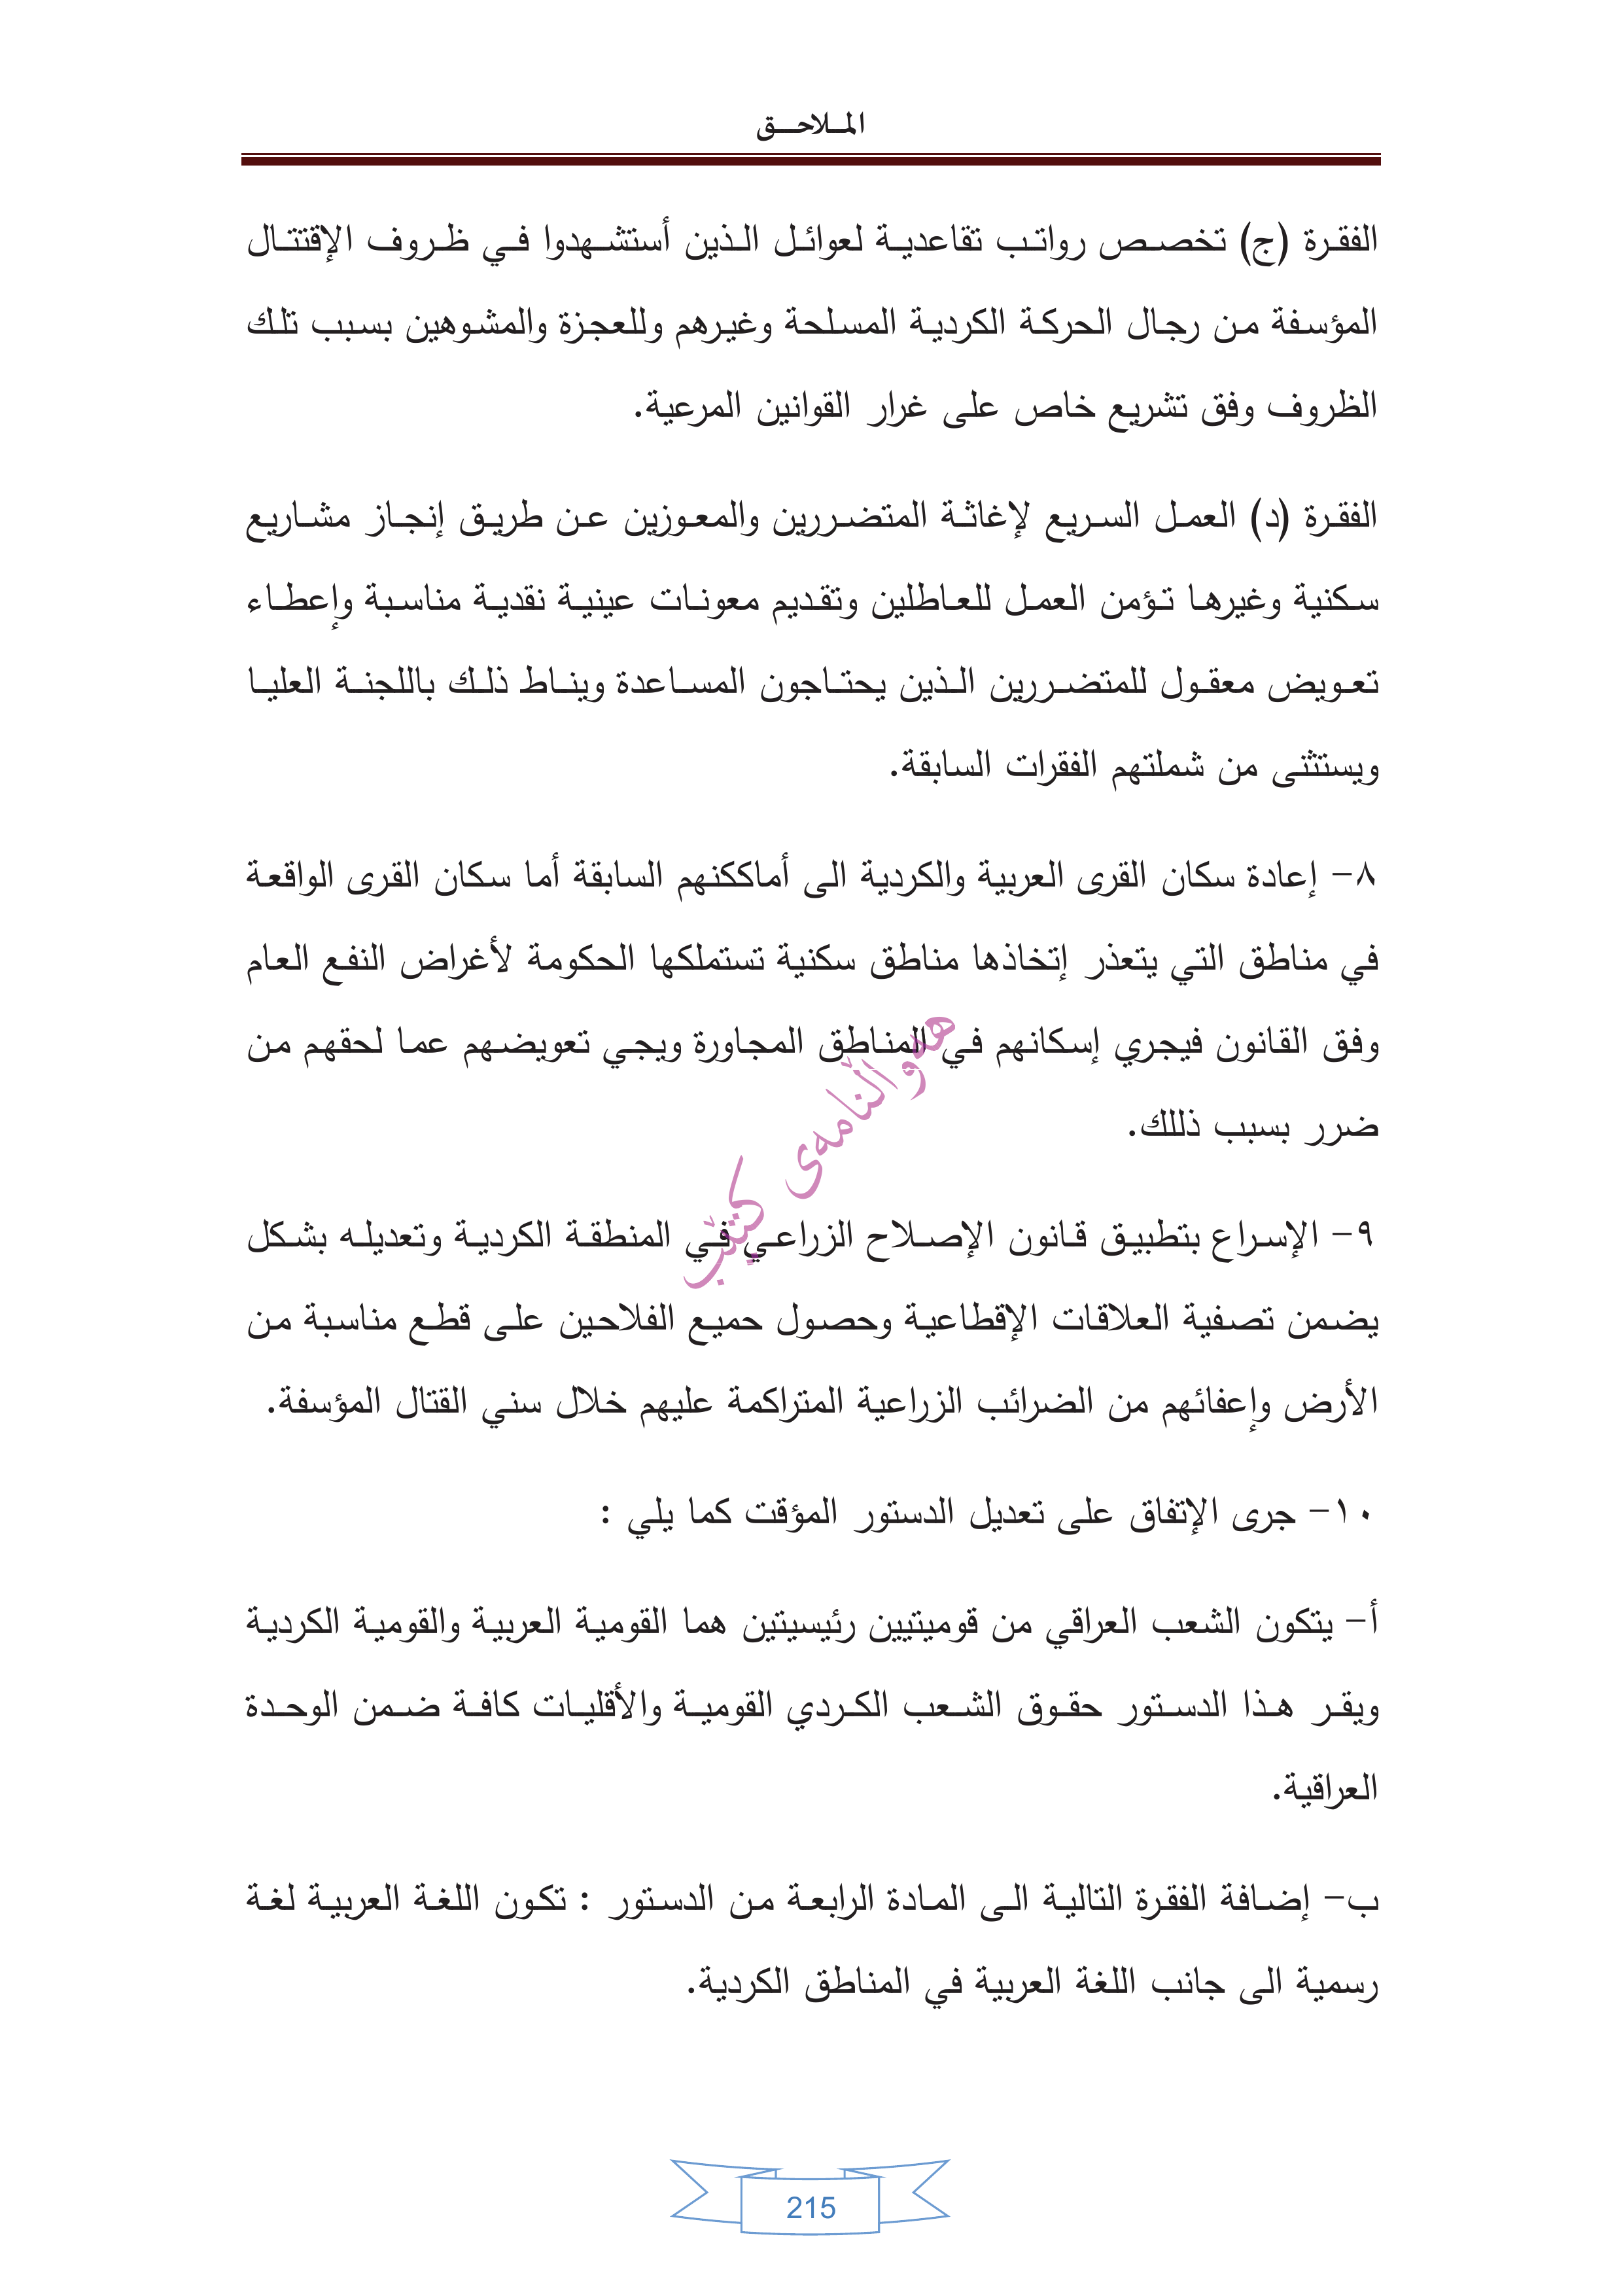 الملاحق
الفقرة (ج) تخصص رواتب تقاعدية لعوائل الذين أستشهدوا في ظروف الإقتتال
المؤسفة من رجال الحركة الكردية المسلحة وغيرهم وللعجزة والمشوهين بسبب تلك
الظروف وفق تشريع خاص على غرار القوانين المرعية.
الفقرة (د) العمل السريع لإغاثة المتضررين والمعوزين عن طريق إنجاز مشاريع
سكنية وغيرها تؤمن العمل للعاطلين وتقديم معونات عينية نقدية مناسبة وإعطاء
تعويض معقول للمتضررين الذين يحتاجون المساعدة ويناط ذلك باللجنة العليا
ويستثنى من شملتهم الفقرات السابقة.
٨- إعادة سكان القرى العربية والكردية الى أماككنهم السابقة أما سكان القرى الواقعة
في مناطق التي يتعذر إتخاذها مناطق سكنية تستملكها الحكومة لأغراض النفع العام
وفق القانون فيجري إسكانهم في المناطق المجاورة ويجي تعويضهم عما لحقهم من
ضرر بسبب ذللك.
٩- الإسراع بتطبيق قانون الإصلاح الزراعي في المنطقة الكردية وتعديله بشكل
يضمن تصفية العلاقات الإقطاعية وحصول حميع الفلاحين على قطع مناسبة من
الأرض وإعفائهم من الضرائب الزراعية المتراكمة عليهم خلال سني القتال المؤسفة.
١٠- جرى الإتفاق على تعديل الدستور المؤقت كما يلي :
أ- يتكون الشعب العراقي من قوميتيين رئيسيتين هما القومية العربية والقومية الكردية
ويقر هذا الدستور حقوق الشعب الكردي القومية والأقليات كافة ضمن الوحدة
العراقية.
ب- إضافة الفقرة التالية الى المادة الرابعة من الدستور : تكون اللغة العربية لغة
رسمية الى جانب اللغة العربية في المناطق الكردية.
هەواڵنامەی کتێب
215